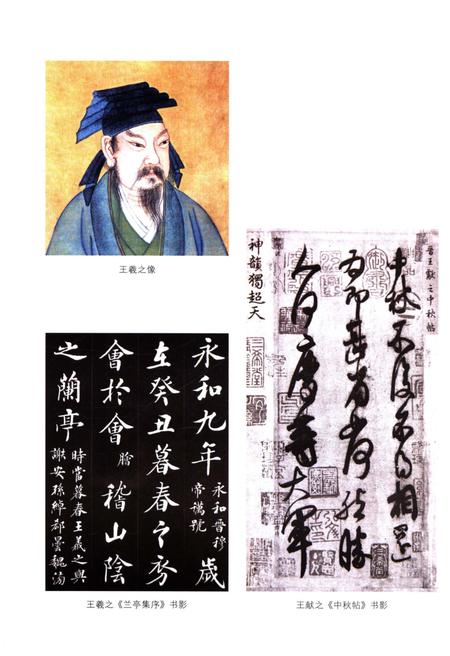 王羲之像
永和九年歲
永和晉穆
帝禩號
在癸丑暮春之初
會於會稽山陰
之蘭亭
時當暮春王羲之與
謝安孫綽郗曇魏滂
王羲之《兰亭集序》书影
晉王獻之中秋帖
中秋不復不得相還
為即甚省如何然勝
人何慶等大軍
神韻獨超天
三希堂
王献之《中秋帖》书影